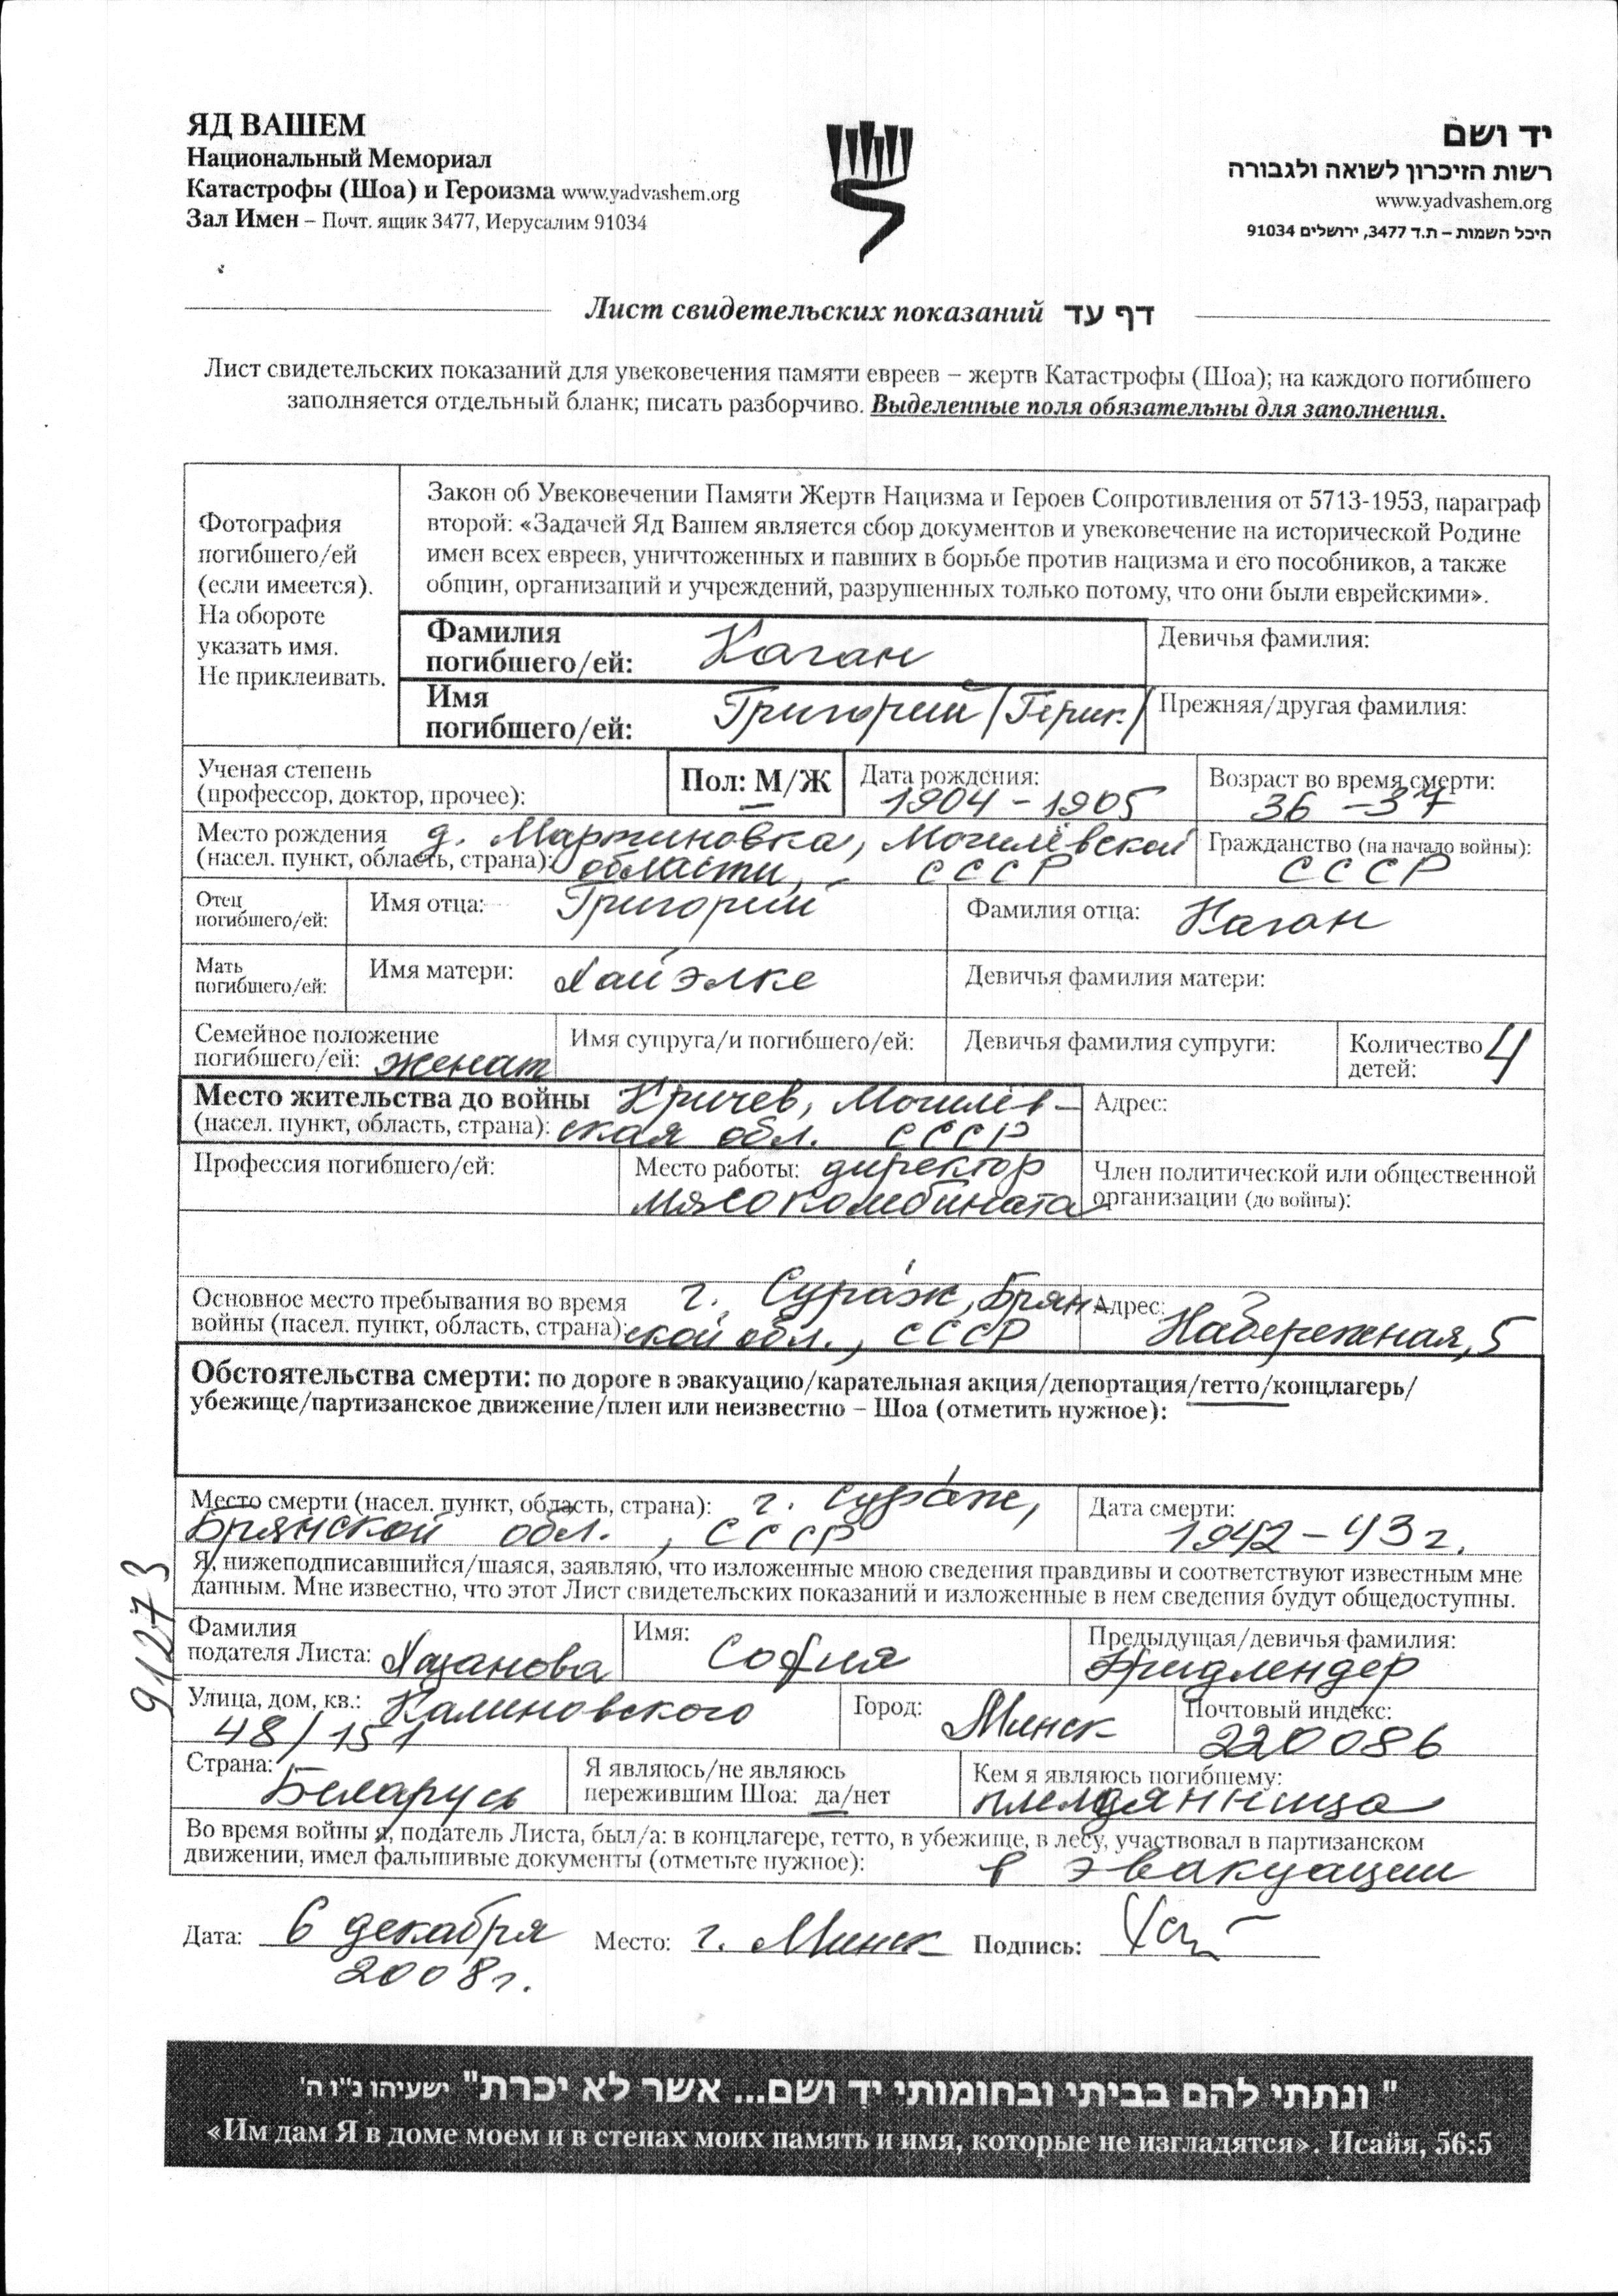 ЯД ВАШЕМ
Национальный Мемориал
Катастрофы (Шоа) и Героизма www.yadvashem.org
Зал Имен – Почт. ящик 3477, Иерусалим 91034
יד ושם
רשות הזיכרון לשואה ולגבורה
www.yadvashem.org
היכל השמות – ת.ד 3477, ירושלים 91034
Лист свидетельских показаний דף עד
Лист свидетельских показаний для увековечения памяти евреев – жертв Катастрофы (Шоа); на каждого погибшего
заполняется отдельный бланк; писать разборчиво. Выделенные поля обязательны для заполнения.
Фотография
погибшего/ей
(если имеется).
На обороте
указать имя.
Не приклеивать.
Закон об Увековечении Памяти Жертв Нацизма и Героев Сопротивления от 5713-1953, параграф
второй: «Задачей Яд Вашем является сбор документов и увековечение на исторической Родине
имен всех евреев, уничтоженных и павших в борьбе против нацизма и его пособников, а также
общин, организаций и учреждений, разрушенных только потому, что они были еврейскими».
Фамилия
погибшего/ей: Каган
Девичья фамилия:
Имя
погибшего/ей: Григорий (Герик)
Прежняя/другая фамилия:
Ученая степень
(профессор, доктор, прочее):
Пол: М/Ж
Дата рождения:
1904 – 1905
Возраст во время смерти:
36 – 37
Место рождения д. Мартиновка, Могилёвской
(насел. пункт, область, страна): области, СССР
Гражданство (на начало войны):
СССР
Отец
погибшего/ей:
Имя отца: Григорий
Фамилия отца: Каган
Мать
погибшего/ей:
Имя матери: Хайэлке
Девичья фамилия матери:
Семейное положение
погибшего/ей: женат
Имя супруга/и погибшего/ей:
Девичья фамилия супруги:
Количество 4
детей:
Место жительства до войны Кричев, Могилёв-
(насел. пункт, область, страна): ская обл. СССР
Адрес:
Профессия погибшего/ей:
Место работы: директор
мясокомбината
Член политической или общественной
организации (до войны):
Основное место пребывания во время г. Сураж, Брян-
войны (насел. пункт, область, страна): ской обл., СССР
Адрес:
Набережная, 5
Обстоятельства смерти: по дороге в эвакуацию/карательная акция/депортация/гетто/концлагерь/
убежище/партизанское движение/плен или неизвестно – Шоа (отметить нужное):
Место смерти (насел. пункт, область, страна): г. Сураж,
Брянской обл., СССР
Дата смерти:
1942 – 43 г.
Я, нижеподписавшийся/шаяся, заявляю, что изложенные мною сведения правдивы и соответствуют известным мне
данным. Мне известно, что этот Лист свидетельских показаний и изложенные в нем сведения будут общедоступны.
91273
Фамилия
подателя Листа: Хазанова
Имя: София
Предыдущая/девичья фамилия:
Фридлендер
Улица, дом, кв.: Калиновского
48/151
Город: Минск
Почтовый индекс:
220086
Страна:
Беларусь
Я являюсь/не являюсь
пережившим Шоа: да/нет
Кем я являюсь погибшему:
племянница
Во время войны я, податель Листа, был/а: в концлагере, гетто, в убежище, в лесу, участвовал в партизанском
движении, имел фальшивые документы (отметьте нужное): в эвакуации
Дата: 6 декабря Место: г. Минск Подпись:
2008г.
" ונתתי להם בביתי ובחומותי יד ושם... אשר לא יכרת" ישעיהו נ"ו ה'
«Им дам Я в доме моем и в стенах моих память и имя, которые не изгладятся». Исайя, 56:5